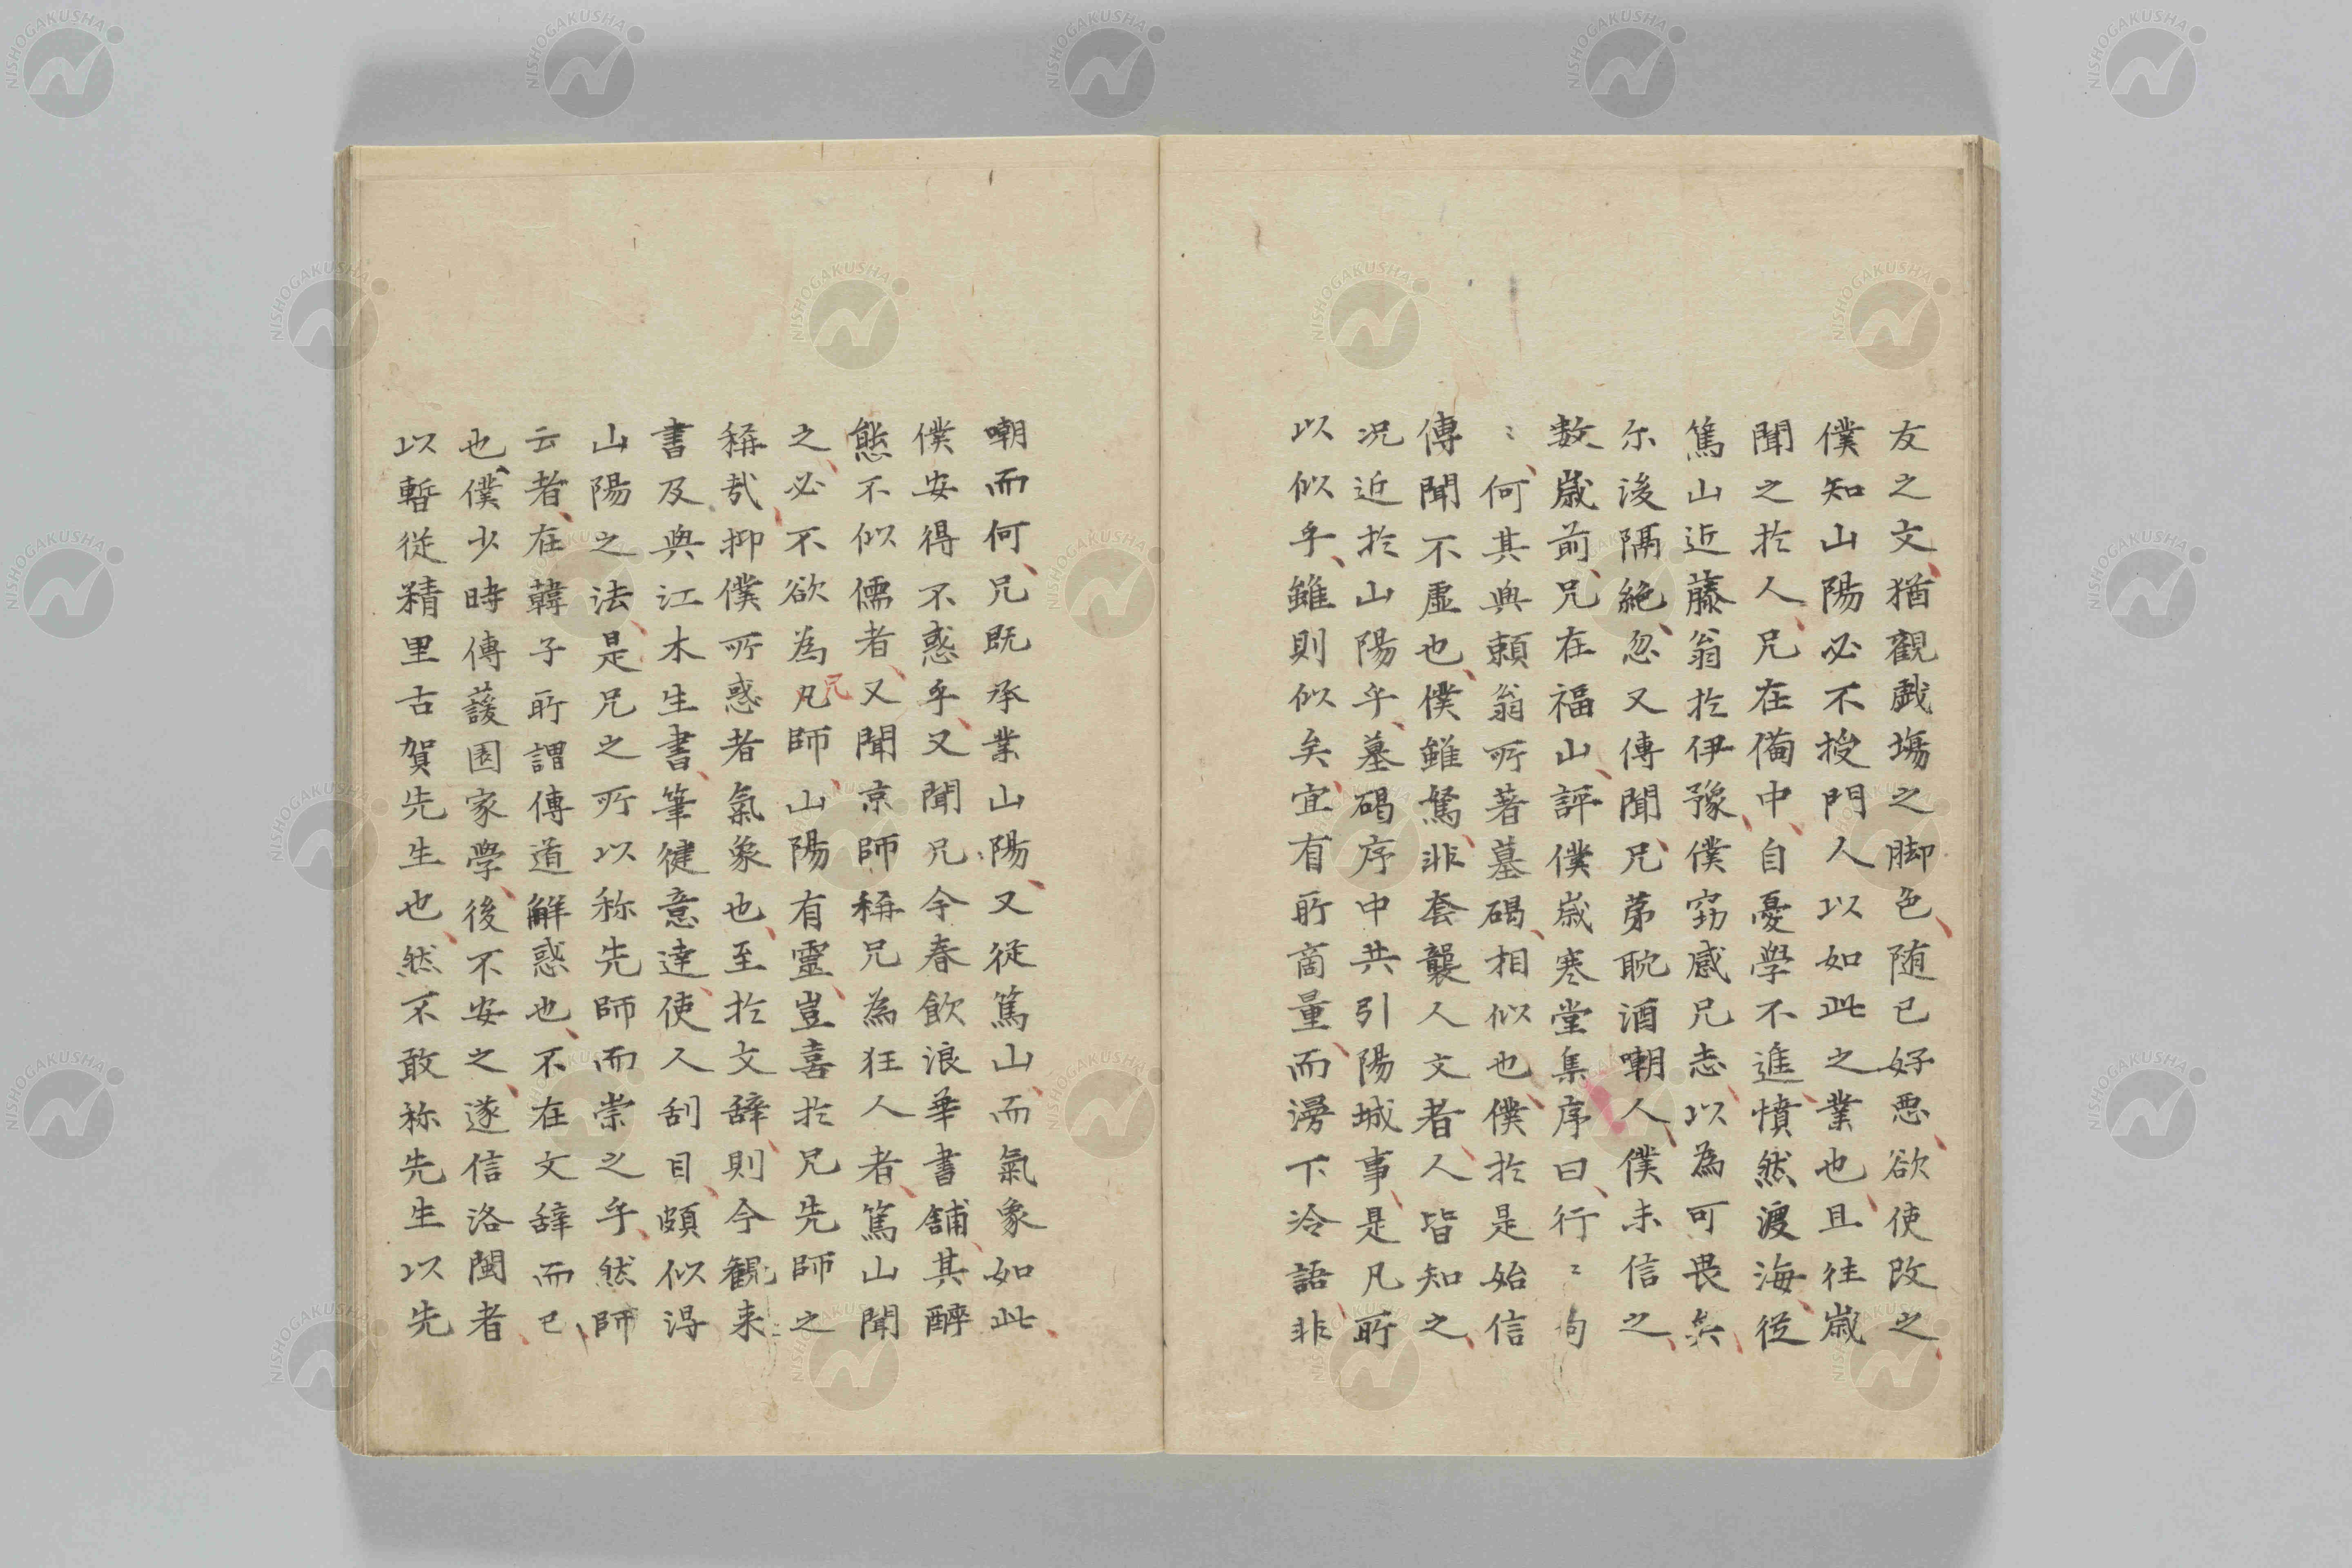 友之文猶觀戯場之脚色随已好悪欲使改之
僕知山陽必不授門人以如此之業也且往歳
聞之於人兄在備中自憂學不進憤然渡海従
篤山近藤翁於伊豫僕窃感兄志以為可畏矣
尓後隔絶忽又傳聞兄苐耽酒嘲人僕未信之
数歳前兄在福山評僕歳寒堂集序曰行〻句
〻何其與頼翁所著墓碣相似也僕於是始信
傳聞不虚也僕雖駑非套襲人文者人皆知之
况近於山陽乎墓碣序中共引陽城事是凡所
以似乎雖則似矣宜有所商量而漫下冷語非
嘲而何兄既承業山陽又従篤山而氣象如此
僕安得不惑乎又聞兄今春飲浪華書舗其醉
態不似儒者又聞京師稱兄為狂人者篤山聞
之必不欲為凡師山陽有靈豈喜於兄先師之
兄
稱哉抑僕所惑者氣象也至於文辞則今観来
書及與江木生書筆健意達使人刮目頗似得
山陽之法是兄之所以称先師而崇之乎然師
云者在韓子所謂傳道解惑也不在文辞而已
也僕少時傳蘐園家學後不安之遂信洛閩者
以暫従精里古賀先生也然不敢称先生以先
NISHOGAKUSHA